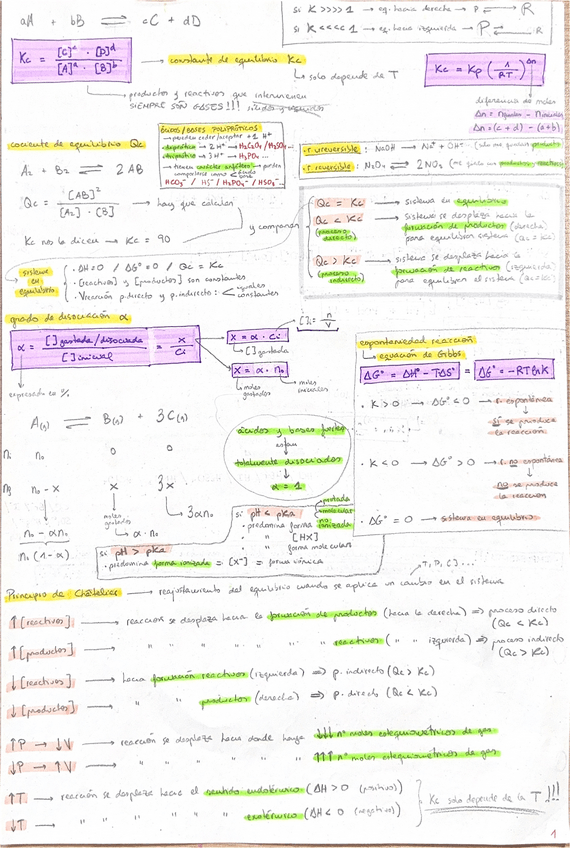 aA + bB ⇌ cC + dD
si K >>>> 1 → eq. hacia derecha → P ⇌ R
si K <<<< 1 → eq. hacia izquierda → P ⇌ R
Kc = [C]^c · [D]^d / [A]^a · [B]^b → constante de equilibrio Kc
↳ solo depende de T
Kc = Kp (1/RT)^Δn
↳ productos y reactivos que intervienen
SIEMPRE SON GASES!!!
diferencia de moles
Δn = nfinales − niniciales
Δn = (c + d) − (a+b)
cociente de equilibrio Qc
A2 + B2 ⇌ 2 AB
Qc = [AB]² / [A2] · [B] → hay que calcular
Kc nos lo dicen → Kc = 90
y comparan
ÁCIDOS/BASES POLIPRÓTICOS
→ pueden ceder/aceptar + 1 H⁺
· diprótico → 2H⁺ → H2CO3 / H2SO4...
· triprótico → 3H⁺ → H3PO4...
→ tienen carácter anfótero → pueden
comportarse como ácido base
HCO3⁻ / HS⁻ / H2PO4⁻ / HSO4⁻...
· r. irreversible: NaOH → Na⁺ + OH⁻
· r. reversible: N2O4 ⇌ 2NO2
Qc = Kc → sistema en equilibrio
Qc < Kc → sistema se desplaza hacia la
(proceso directo) formación de productos (derecha)
para equilibrar sistema (Qc = Kc)
Qc > Kc → sistema se desplaza hacia la
(proceso indirecto) formación de reactivos (izquierda)
para equilibrar el sistema (Qc = Kc)
sistema en equilibrio
· ΔH=0 / ΔG°=0 / Qc = Kc
· [reactivos] y [productos] son constantes
· Vreacción p.directo y p.indirecto: iguales
constantes
grado de disociación α
α = [ ] gastada/disociada / [ ] inicial = x / Ci
x = α · Ci
↳ [ ] gastada
[ ] = n/V
x = α · n0
moles gastados
moles iniciales
expresado en %
A(g) ⇌ B(g) + 3C(g)
ni n0 0 0
nf n0 − x x 3x
n0 − αn0
moles gastados
↳ α · n0
↳ 3αn0
n0 (1−α)
ácidos y bases fuertes
están
totalmente disociados
α = 1
espontaneidad reacción
↳ ecuación de Gibbs
ΔG° = ΔH° − TΔS° = ΔG° = −RT ln K
· K>0 → ΔG° < 0 → r. espontánea
sí se produce
la reacción
· K<0 → ΔG° > 0 → r. no espontánea
no se produce
la reacción
· ΔG° = 0 → sistema en equilibrio
si pH < pKa
· predomina forma
" " [HX]
" " forma molecular
protada
molecular
no ionizada
si pH > pKa
· predomina forma ionizada = [X⁻] = forma iónica
Principio de Châtelier → reajustamiento del equilibrio cuando se aplica un cambio en el sistema
T, P, [ ]...
↑ [reactivos] → reacción se desplaza hacia la formación de productos (hacia la derecha) ⇒ proceso directo
(Qc < Kc)
↑ [productos] → " " " " reactivos ( " " izquierda) ⇒ proceso indirecto
(Qc > Kc)
↓ [reactivos] → hacia formación reactivos (izquierda) ⇒ p. indirecto (Qc > Kc)
↓ [productos] → " " productos (derecha) ⇒ p. directo (Qc < Kc)
↑P → ↓V → reacción se desplaza hacia donde haya ↓↓↓ nº moles estequiométricos de gas
↓P → ↑V → " " " " " ↑↑↑ nº moles estequiométricos de gas
↑T → reacción se desplaza hacia el sentido endotérmico (ΔH > 0 (positivo))
↓T → " " " " " exotérmico (ΔH < 0 (negativo))
Kc solo depende de la T !!!
1